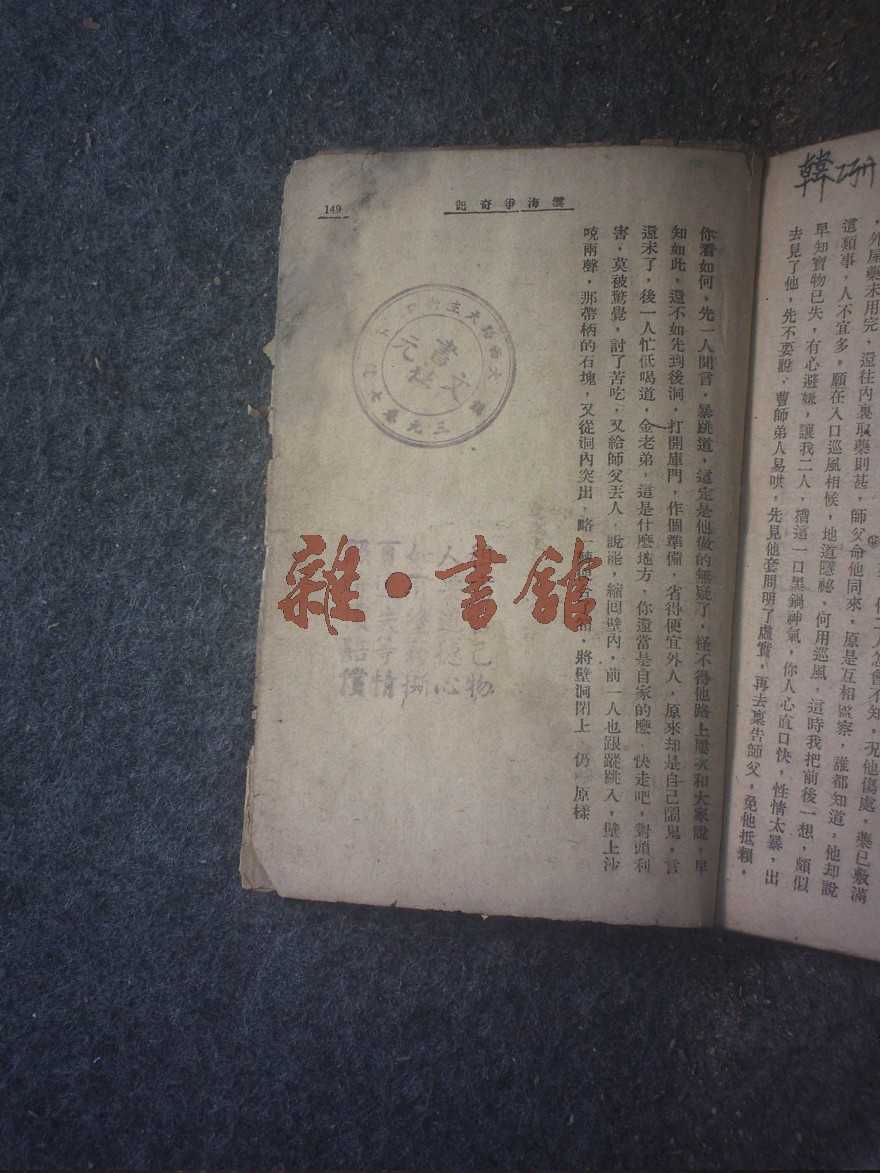 韓
，外屋藥未用完，還往內裏取藥則甚，師父命他同來，原是互相監察，誰都知道，他却說
這類事，人不宜多，願在入口巡風相候，地道隱祕，何用巡風，這時我把前後一想，頗似
早知寶物已失，有心避嫌，讓我二人，揹這一口黑鍋神氣，你人心直口快，性情太暴，出
去見了他，先不要說，曹師弟人易哄，先見他套問明了虛實，再去稟告師父，免他抵賴，
雲海爭奇記
149
你看如何，先一人聞言，暴跳道，這定是他做的無疑了，怪不得他路上屢次和大家說，早
知如此，還不如先到後洞，打開庫門，作個準備，省得便宜外人，原來却是自己鬧鬼，言
還未了，後一人忙低喝道，金老弟，這是什麼地方，你還當是自家的麼，快走吧，對頭利
害，莫被驚覺，討了苦吃，又給師父丟人，說罷，縮回壁內，前一人也跟蹤跳入，壁上沙
嘵兩聲，那帶柄的石塊，又從洞內突出，略一轉，將壁洞閉上，仍原樣
文元書社
三元巷七
雜·書館
己物
人道德心
有失等情
償